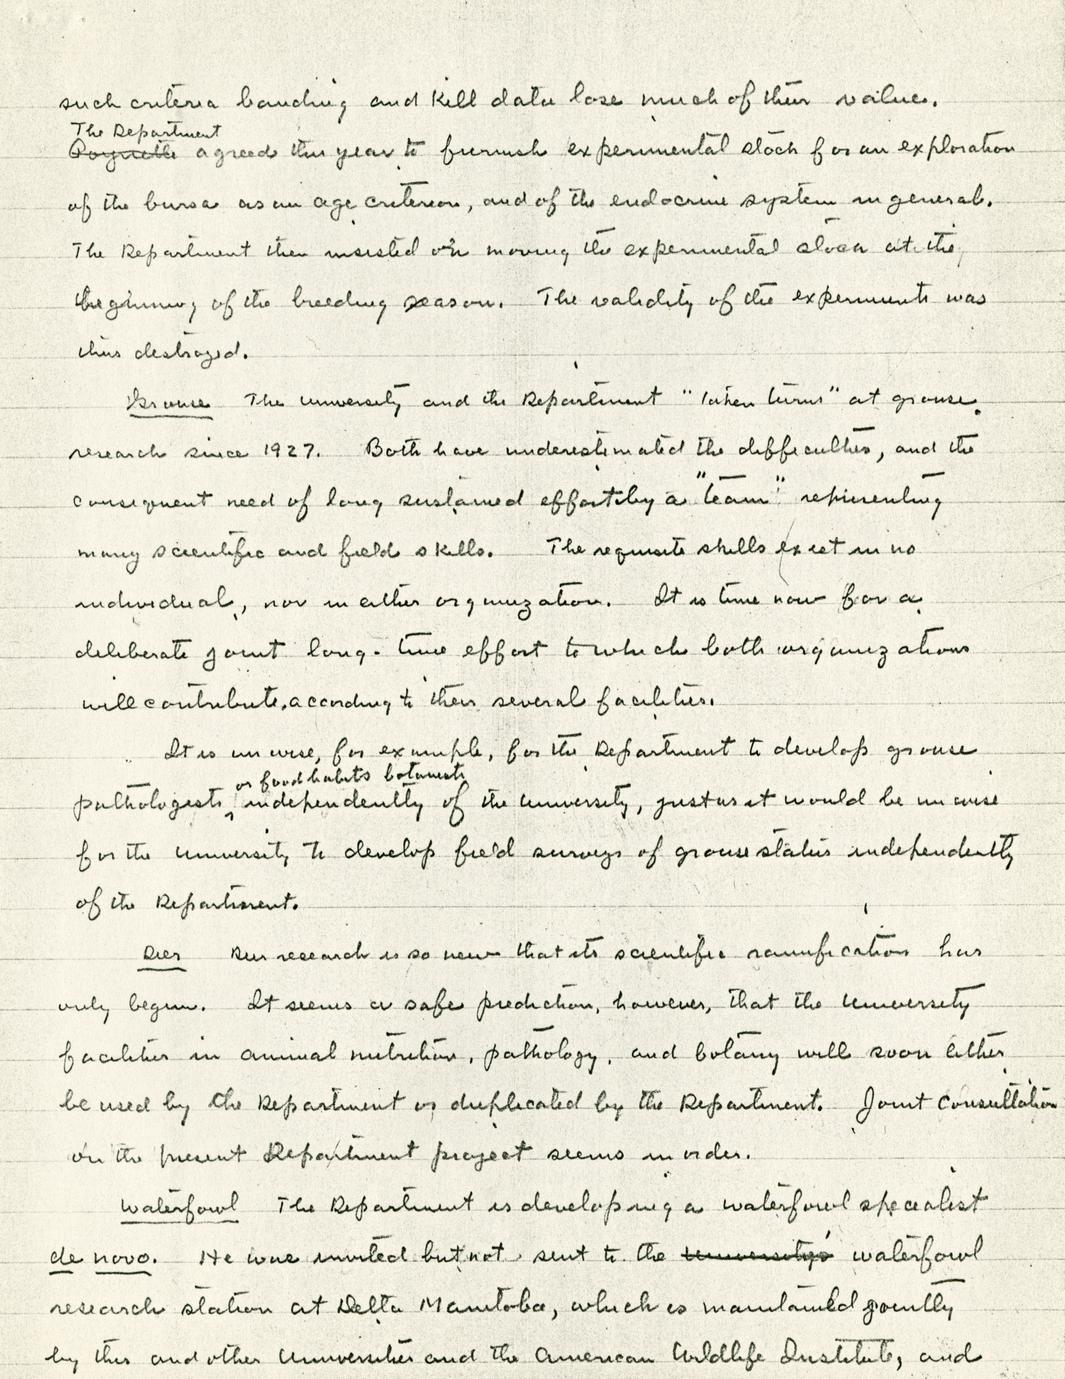 such criteria banding and kill data lose much of their value.
The Department
Poynette agreed this year to furnish experimental stock for an exploration
of the bursa as an age criterion, and of the endocrine system in general.
The Department then insisted on moving the experimental stock at the
beginning of the breeding season. The validity of the experiments was
thus destroyed.
Grouse The University and the Department "taken turns" at grouse
research since 1927. Both have underestimated the difficulties, and the
consequent need of long sustained effort by a "team" representing
many scientific and field skills. The requisite skills exist in no
individual, nor in either organization. It is time now for a
deliberate joint long-time effort to which both organizations
will contribute according to their several facilities.
It is unwise, for example, for the Department to develop grouse
or food habits botanists
pathologists independently of the University, just as it would be unwise
for the University to develop field surveys of grouse status independently
of the Department.
Deer Deer research is so new that its scientific ramification has
only begun. It seems a safe prediction, however, that the University
facilities in animal nutrition, pathology, and botany will soon either
be used by the Department or duplicated by the Department. Joint consultation
on the present Department project seems in order.
Waterfowl The Department is developing a waterfowl specialist
de novo. He was invited but not sent to the University's waterfowl
research station at Delta Manitoba, which is maintained jointly
by this and other Universities and the American Wildlife Institute, and